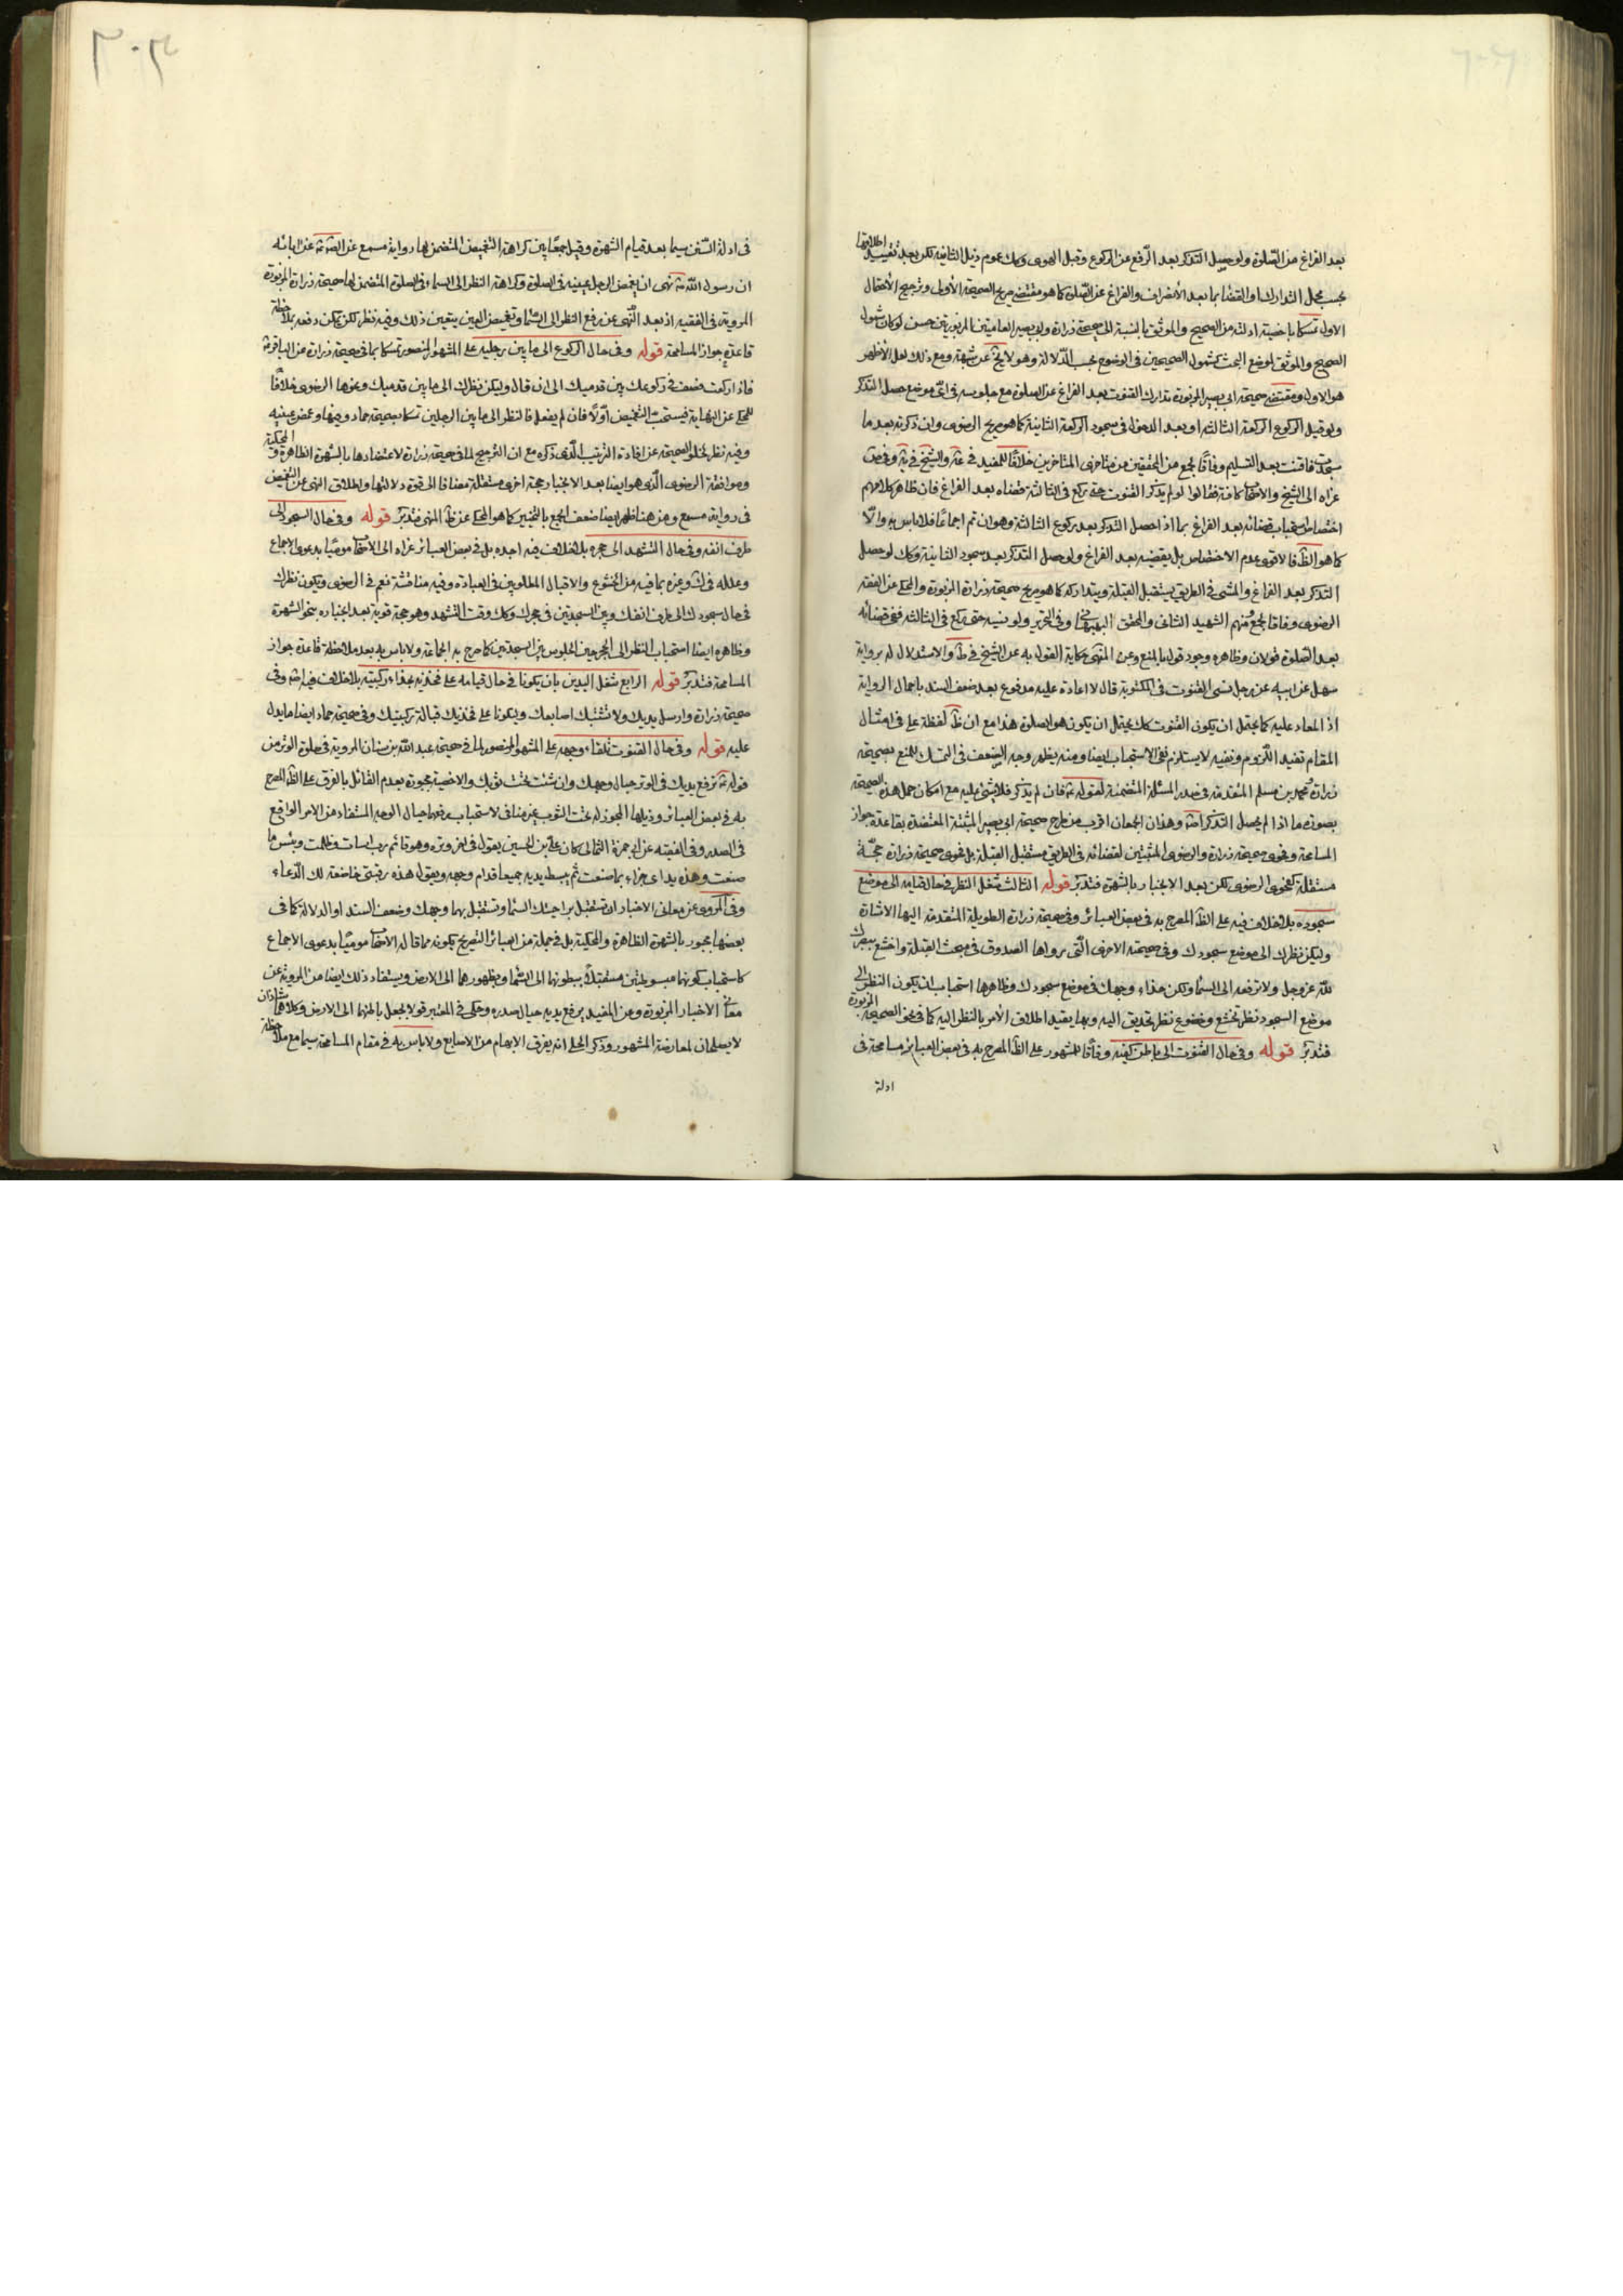 بعد الفراغ من الصلوة ولو حصل التذكر بعد الرفع عن الركوع وقبل الهوى وكك عموم ذيل الثانية لكن بعد تقييد اطلاقها
بحسب محل التدارك والقضا بما بعد الانصراف والفراغ عن الصلوة كما هو مقتضى صريح الصحيحة الأولى وترجيح الأحتمال
الاول تمسكا باخصية ادلته من الصحيح والموثق بالنسبة الى صحيحة زرارة وابى بصير العامتين المزبورتين حسن لو كان شمول
الصحيح والموثق لموضع البحث كشمول الصحيحين فى الوضوح بحسب الدلالة وهو لا يخ عن شبهة ومع ذلك لعل الأظهر
هو الاول ومقتضى صحيحة ابى بصير المزبورة تدارك القنوت بعد الفراغ عن الصلوة مع جلوسه فى اىّ موضع حصل التذكر
ولو قبل الركوع الركعة الثالثة او بعد الدخول فى سجود الركعة الثانية كما هو صريح الرضوى وان ذكرته بعد ما
سجدت فاقنت بعد التسليم وفاقًا لجمع من المحققين من متاخرى المتاخرين خلافًا للمفيد فى عة والشيخ فى ية وفى ض
عزاه الى الشيخ والاصحاب كافة فقالوا لو لم يذكر القنوت حتى يركع فى الثالثة قضاه بعد الفراغ فان ظاهر كلامهم
اختصاص استحباب قضائه بعد الفراغ بما اذا حصل التذكر بعد ركوع الثالثة وهو ان تم اجماعًا فلا باس به والّا
كما هو الظ فالاقوى عدم الاختصاص بل يقضيه بعد الفراغ ولو حصل التذكر بعد سجود الثانية وكك لو حصل
التذكر بعد الفراغ والمشى فى الطريق يستقبل القبلة ويتداركه كما هو صريح صحيحة زرارة المزبورة والمحكى عن الفقه
الرضوى وفاقا لجمع منهم الشهيد الثانى والمحقق البهبهانى وفى التحرير ولو نسيه حتى ركع فى الثالثة ففى قضائه
بعد الصلوة قولان وظاهره وجود قول بالمنع وعن المنتهى حكاية القول به عن الشيخ فى ط والاستدلال له برواية
سهل عن ابيه عن رجل نسى القنوت فى المكتوبة قال لا اعادة عليه مدفوع بعد ضعف السند باجمال الرواية
اذ المعاد عليه كما يحتمل ان يكون القنوت كك يحتمل ان يكون هو الصلوة هذا مع ان ظ لفظة على فى امثال
المقام تفيد اللزوم ونفيه لا يستلزم نفى الاستحباب ايضا ومنه يظهر وجه الضعف فى التمسك للمنع بصحيحة
زرارة ومحمد بن مسلم المتقدمة فى صدر المسئلة المتضمنة لقوله ع فان لم يذكر فلا شئ عليه مع امكان حمل هذه الصحيحة
بصورة ما اذا لم يحصل التذكر اصلا وهذان الجمعان اقرب من طرح صحيحة ابى بصير المثبتة المعتضدة بقاعدة جواز
المسامحة وفحوى صحيحة زرارة والرضوى المثبتين لقضائه فى الطريق مستقبل القبلة بل فحوى صحيحة زرارة حجّة
مستقلة كفحوى الرضوى لكن بعد الانجبار بالشهرة فتدبر قوله الثالث شغل النظر فى حال قيامه الى موضع
سجوده بلا خلاف فيه على الظ المصرح به فى بعض العبائر وفى صحيحة زرارة الطويلة المتقدمة اليها الاشارة
وليكن نظرك الى موضع سجودك وفى صحيحته الاخرى التى رواها الصدوق فى مبحث القبلة واخشع ببصرك
لله عز وجل ولا ترفعه الى السماء وليكن حذاء وجهك فى موضع سجودك وظاهرها استحباب ان يكون النظر الى
موضع السجود نظر تخشع وخضوع نظر تحديق اليه وبها يقيد اطلاق الأمر بالنظر اليه كما فى نحو الصحيحة المزبورة
فتدبر قوله وفى حال القنوت الى باطن كفيه وفاقا للمشهور على الظ المصرح به فى بعض العبائر مسامحة فى
ادلة
٣٠٢
فى ادلة السنن سيما بعد قيام الشهرة وقيل جمعًا بين كراهة التغميض المتضمن لها رواية مسمع عن الصّ ع عن ابائه
ان رسول الله ص نهى ان يغمض الرجل عينيه فى الصلوة وكراهة النظر الى السماء فى الصلوة المتضمن لها صحيحة زرارة المزبورة
المروية فى الفقيه اذ بعد النّهى عن رفع النظر الى السّماء وتغميض العين يتعين ذلك وفيه نظر لكن يمكن دفعه بملاحظة
قاعدة جواز المسامحة قوله وفى حال الركوع الى ما بين رجليه على المشهور المنصور تمسكا بما فى صحيحة زرارة عن الباقر ع
فاذا ركعت فصف فى ركوعك بين قدميك الى ان قال وليكن نظرك الى ما بين قدميك ونحوها الرضوى خلافًا
للمحكى عن النهاية فيستحب التغميض اوّلًا فان لم يفعل فالنظر الى ما بين الرجلين تمسكا بصحيحة حماد وفيها وغمض عينيه
وفيه نظر لخلو الصحيحة عن افادة الترتيب الّذى ذكره مع ان الترجيح لما فى صحيحة زرارة لاعتضادها بالشهرة الظاهرة والمحكية
وموافقة الرضوى الّذى هو ايضا بعد الانجبار حجة اخرى مستقلة مضافا الى قوة دلالتها واطلاق النهى عن التغميض
فى رواية مسمع ومن هنا ظهر ايضا ضعف الجمع بالتخيير كما هو المحكى عن ظ المنتهى فتدبر قوله وفى حال السجود الى
طرف انفه وفى حال التشهد الى حجره بلا خلاف فيه اجده بل فى بعض العبائر عزاه الى الاصحاب موميًا بدعوى الاجماع
وعلله فى ك وغيره بما فيه من الخشوع والاقبال المطلوبين فى العبادة وفيه مناقشة نعم فى الرضوى ويكون نظرك
فى حال سجودك الى طرف انفك وبين السجدتين فى حجرك وكك وقت التشهد وهو حجة قوية بعد انجباره بنحو الشهرة
وظاهره ايضا استحباب النظر الى الحجر حين الجلوس بين السجدتين كما صرح به الجماعة ولا باس به بعد ملاحظة قاعدة جواز
المسامحة فتدبر قوله الرابع شغل اليدين بان يكونا فى حال قيامه على فخذيه بحذاء ركبتيه بلا خلاف فيه اجده وفى
صحيحة زرارة وارسل يديك ولا تشبك اصابعك وليكونا على فخذيك قبالة ركبتيك وفى صحيحة حماد ايضا ما يدل
عليه قوله وفى حال القنوت تلقاء وجهه على المشهور المنصور لما فى صحيحة عبد الله بن سنان المروية فى صلوة الوتر من
قوله ع ترفع يديك فى الوتر حيال وجهك وان شئت تحت ثوبك والاخصية مجبورة بعدم القائل بالفرق على الظ المصرح
به فى بعض العبائر وذيلها المجوز له تحت الثوب غير مناف لاستحباب رفعهما حيال الوجه المستفاد من الامر الواقع
فى الصدر وفى الفقيه عن ابى حمزة الثمالى كان على بن الحسين يقول فى اخر وتره وهو قائم رب اسات وظلمت وبئس ما
صنعت وهذه يداى جزاء بما صنعت ثم يبسط يديه جميعا قدام وجهه ويقول هذه رقبتى خاضعة لك الدّعاء
وفى المروى عن معانى الاخبار ان تستقبل براحتيك السّماء وتستقبل بهما وجهك وضعف السند او الدلالة كما فى
بعضها مجبور بالشهرة الظاهرة والمحكية بل فى جملة من العبائر التصريح بكونه مما قاله الاصحاب موميًا بدعوى الاجماع
كاستحباب كونهما مبسوطتين مستقبلًا ببطونهما الى السّماء وبظهورهما الى الارض ويستفاد ذلك ايضا من المروية عن
معانى الاخبار المزبورة وعن المفيد يرفع يديه حيال صدره وحكى فى المعتبر قولا بجعل باطنهما الى الارض وكلاهما شاذان
لا يصلحان لمعارضة المشهور وذكر الحلى انه يفرق الابهام من الاصابع ولا باس به فى مقام المسامحة سيما مع ملاحظة